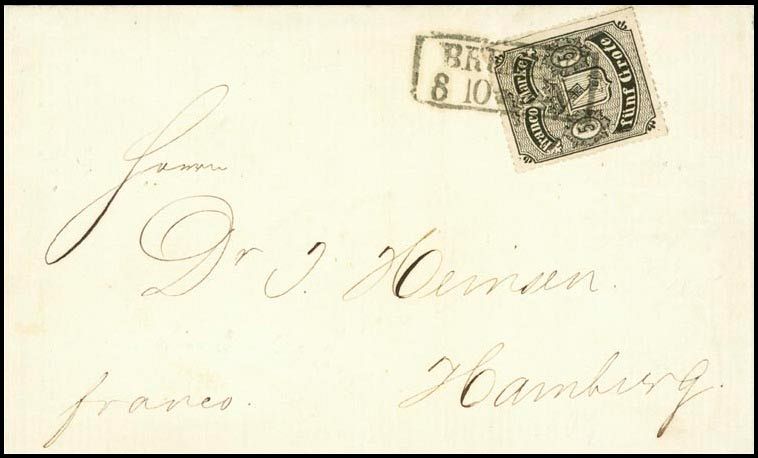 BR
8 10
Franco Marke
Fünf Grote
5 5
Herrn
Dr J. Heinsen.
Hamburg.
franco.